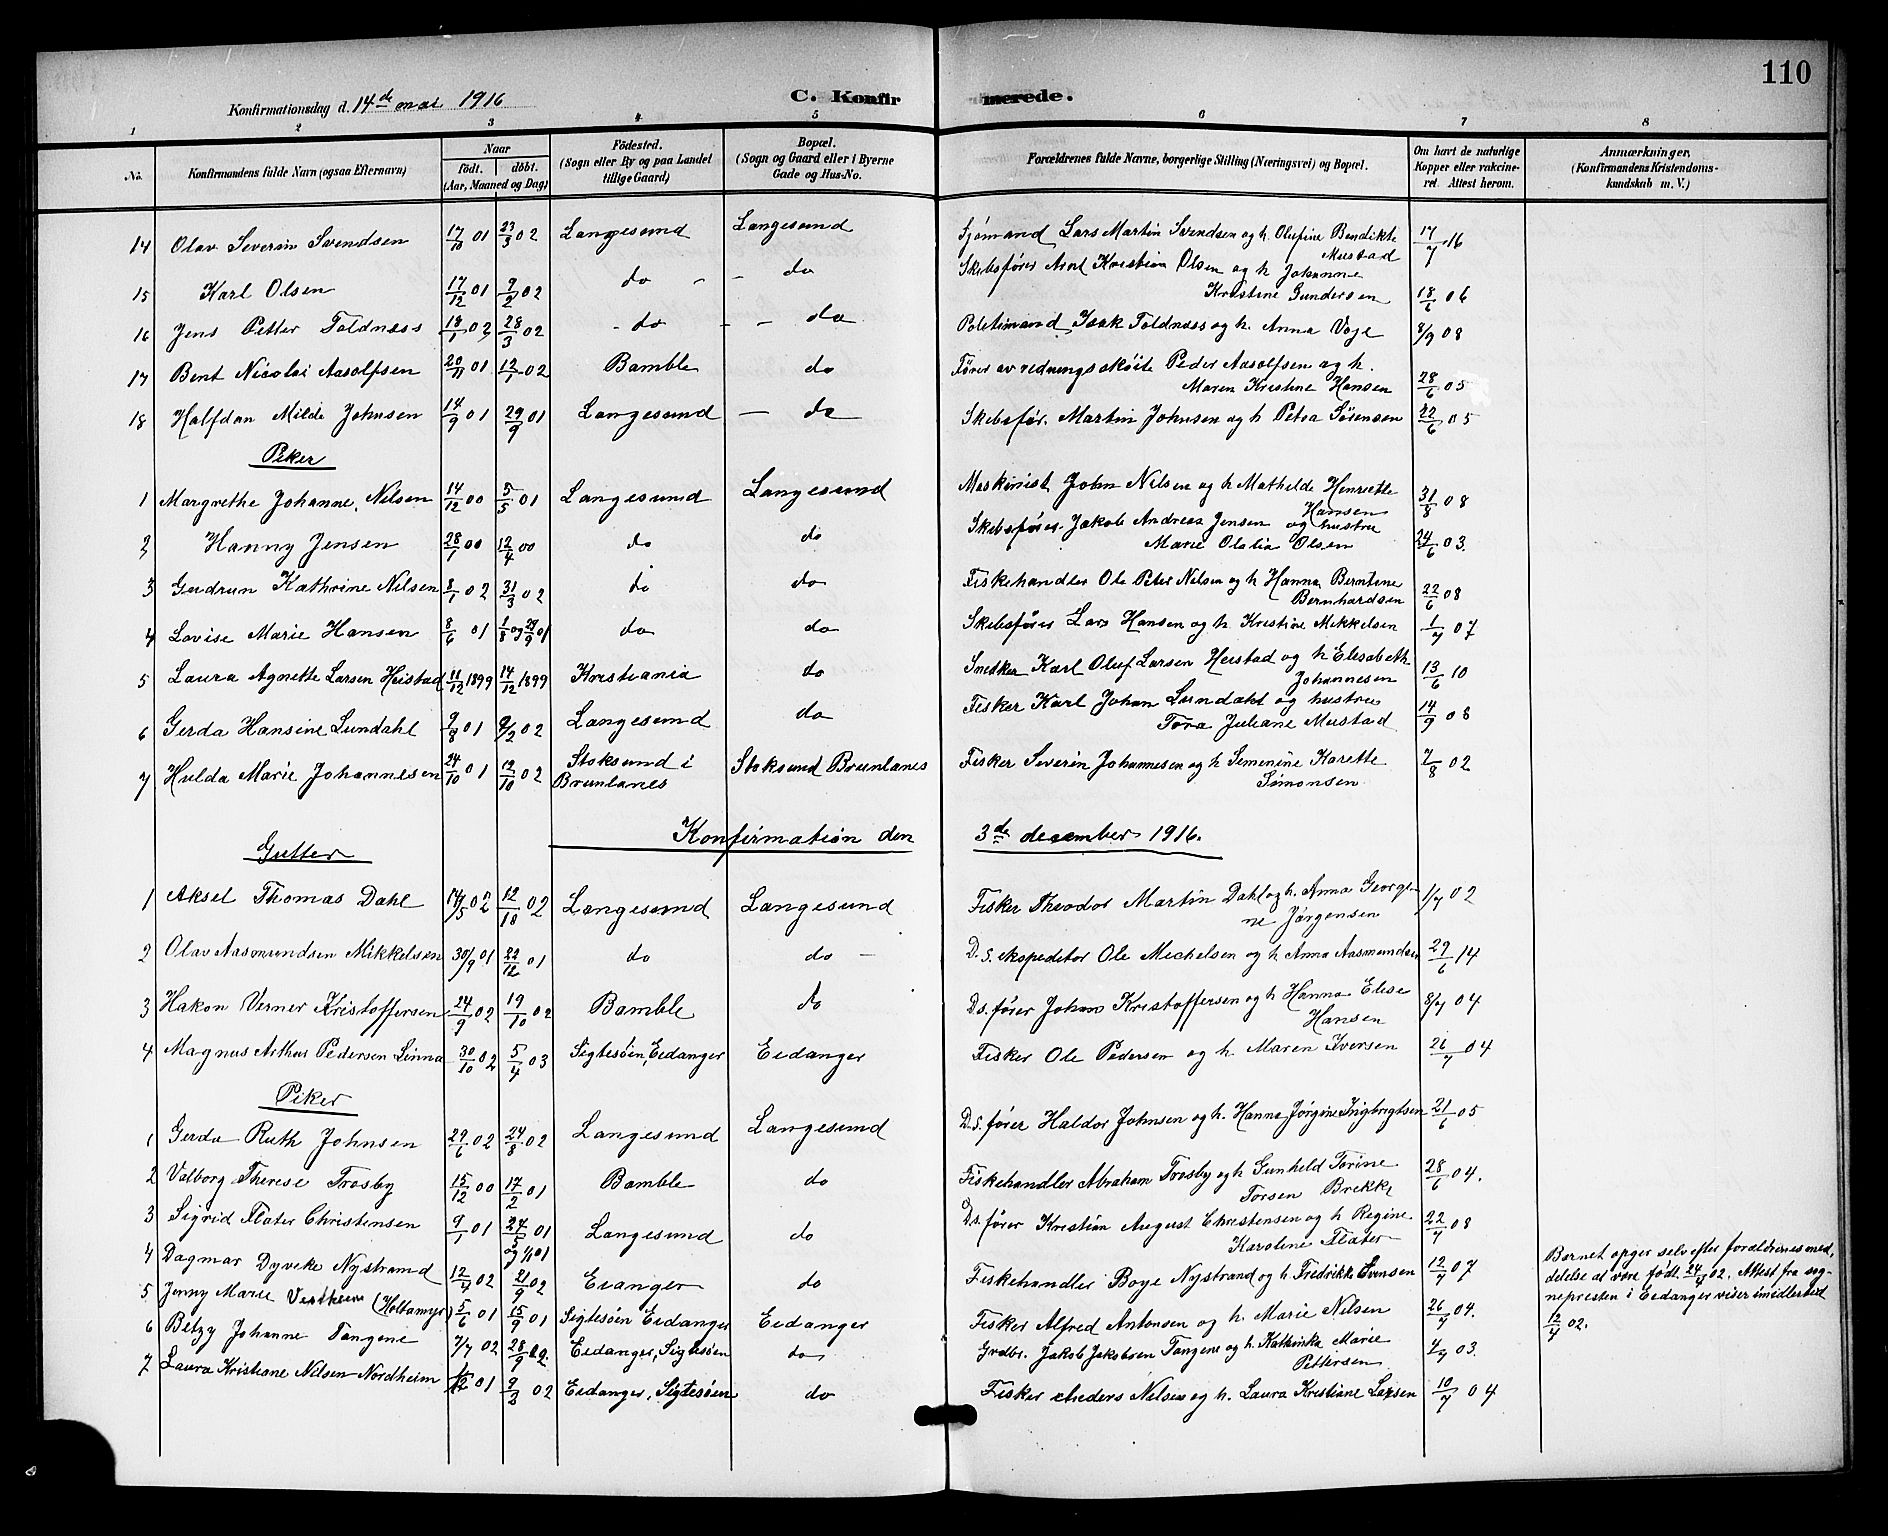 110
Konfirmationsdag d. 14de mai 1916
C. Konfirmerede.
1 2 3 4 5 6 7 8
No. Konfirmandens fulde Navn (ogsaa Efternavn) Naar født. døbt. (Aar, Maaned og Dag) Fødested. (Sogn eller By og paa Landet tillige Gaard) Bopæl. (Sogn og Gaard eller i Byerne Gade og Hus-No. Forældrenes fulde Navne, borgerlige Stilling (Næringsvei) og Bopæl. Om havt de naturlige Kopper eller vakcineret. Attest herom. Anmærkninger, (Konfirmandens Kristendomskundskab m. V.)
14 Olav Severin Svendsen 17/10 01 23/3 02 Langesund Langesund Sjømand Lars Martin Svendsen og h. Olufine Bendikte Mustad 17/7 16
15 Karl Olsen 17/12 01 9/2 02 do - - do Skibsfører Arnt Kristian Olsen og h Johanne Kristine Gundersen 18/6 06
16 Jens Petter Toldnæss 18/1 02 28/3 02 - do - - do Politimand Isak Toldnæss og h. Anna Voje 8/9 08
17 Bent Nicolai Aasolfsen 20/11 01 12/1 02 Bamble do Fører av redningsskøite Peder Aasolfsen og h. Maren Kristine Hansen 28/6 05
18 Halfdan Milde Johnsen 14/9 01 29/9 01 Langesund - do Skibsfør. Martin Johnsen og h Petra Sørensen 22/6 05
Piker
1 Margrethe Johanne Nilsen 14/12 00 5/5 01 Langesund Langesund Maskinist John Nilsen og h Mathilde Henriette Hansen 31/8 08
2 Hanny Jensen 28/1 00 12/4 00 do do Skibsfører Jakob Andreas Jensen og hustru Marie Olalia Olsen 24/6 03.
3 Gudrun Kathrine Nilsen 8/1 02 31/3 02 do do Fiskehandler Ole Peter Nilsen og h Hanna Berntine Bernhardsen 22/6 08
4 Lovise Marie Hansen 8/6 01 1/8 og 29/9 01 do do Skibsfører Lars Hansen og h Kristine Mikkelsen 1/7 07
5 Laura Agnette Larsen Heistad 11/12 1899 14/12 1899 Kristiania do Snedker Karl Oluf Larsen Heistad og h Elisabeth Johannesen 13/6 10
6 Gerda Hansine Lundahl 9/8 01 9/2 02 Langesund do Fisker Karl Johan Lundahl og hustru Tora Juliane Mustad 14/9 08
7 Hulda Marie Johannesen 24/10 01 12/10 02 Stoksund i Brunlanes Stoksund Brunlanes Fisker Severin Johannesen og h Simenine Karette Simonsen 7/8 02
Konfirmation den 3de december 1916.
Gutter
1 Aksel Thomas Dahl 14/5 02 12/10 02 Langesund Langesund Fisker Theodor Martin Dahl og h. Anna Georgine Jørgensen 1/7 02
2 Olav Aasmundsen Mikkelsen 30/9 01 22/12 01 do do - D. S. ekspeditør Ole Mickelsen og h Anna Aasmundsen 29/6 14
3 Hakon Verner Kristoffersen 24/9 02 19/10 02 Bamble do Ds. fører Johan Kristoffersen og h Hanna Elise Hansen 8/7 04
4 Magnus Arthur Pedersen Linna 30/10 02 5/4 03 Sigtesøen, Eidanger Eidanger Fisker Ole Pedersen og h Maren Iversen 26/7 04
Piker
1 Gerda Ruth Johnsen 29/6 02 24/8 02 Langesund Langesund D. S. fører Haldor Johnsen og h. Hanna Jørgine Ingbrigtsen 21/6 05
2 Valborg Therese Trosby 15/12 00 17/2 01 Bamble do Fiskehandler Abraham Trosby og h Gunhild Torine Torsen Brekke 28/6 04.
3 Sigrid Flater Christensen 9/1 01 24/5 01 og 1/6 01 Langesund do Ds. fører Kristian August Christensen og h Regine Karoline Flater 22/7 08
4 Dagmar Dyveke Nystrand 12/4 02 21/9 02 Eianger do Fiskehandler Boye Nystrand og h Fredrikke Svensen 12/7 07 Barnet opger selv efter forældrenes meddelelse at være født 24/4 02. Attest fra sognepresten i Eidanger viser imidlertid 12/4 02.
5 Jenny Marie Vestheim (Holtamyr) 5/6 01 15/9 01 Sigtesøen Eidanger Eidanger Fisker Alfred Antonsen og h. Marie Nilsen 26/7 04.
6 Betzy Johanne Tangene 7/7 02 28/9 02. Eidanger, Sigtesøen do Grdbr. Jakob Jakobsen Tangene og h. Kathinka Marie Pettersen 4/9 03.
7 Laura Kristiane Nilsen Nordheim 01 9/2 02 Eidanger, Sigtesøen do Fisker Anders Nilsen og h. Laura Kristiane Larsen 10/7 04